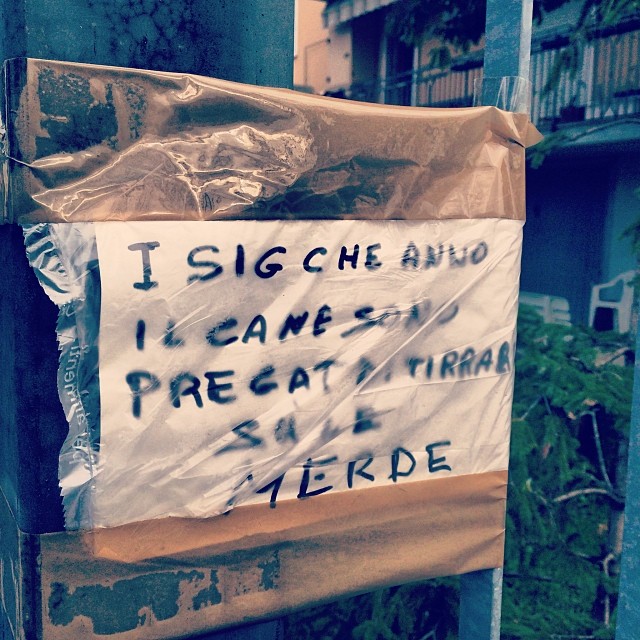 I SIG CHE ANNO
IL CANE SONO
PREGAT DI TIRRAR
SULE
MERDE